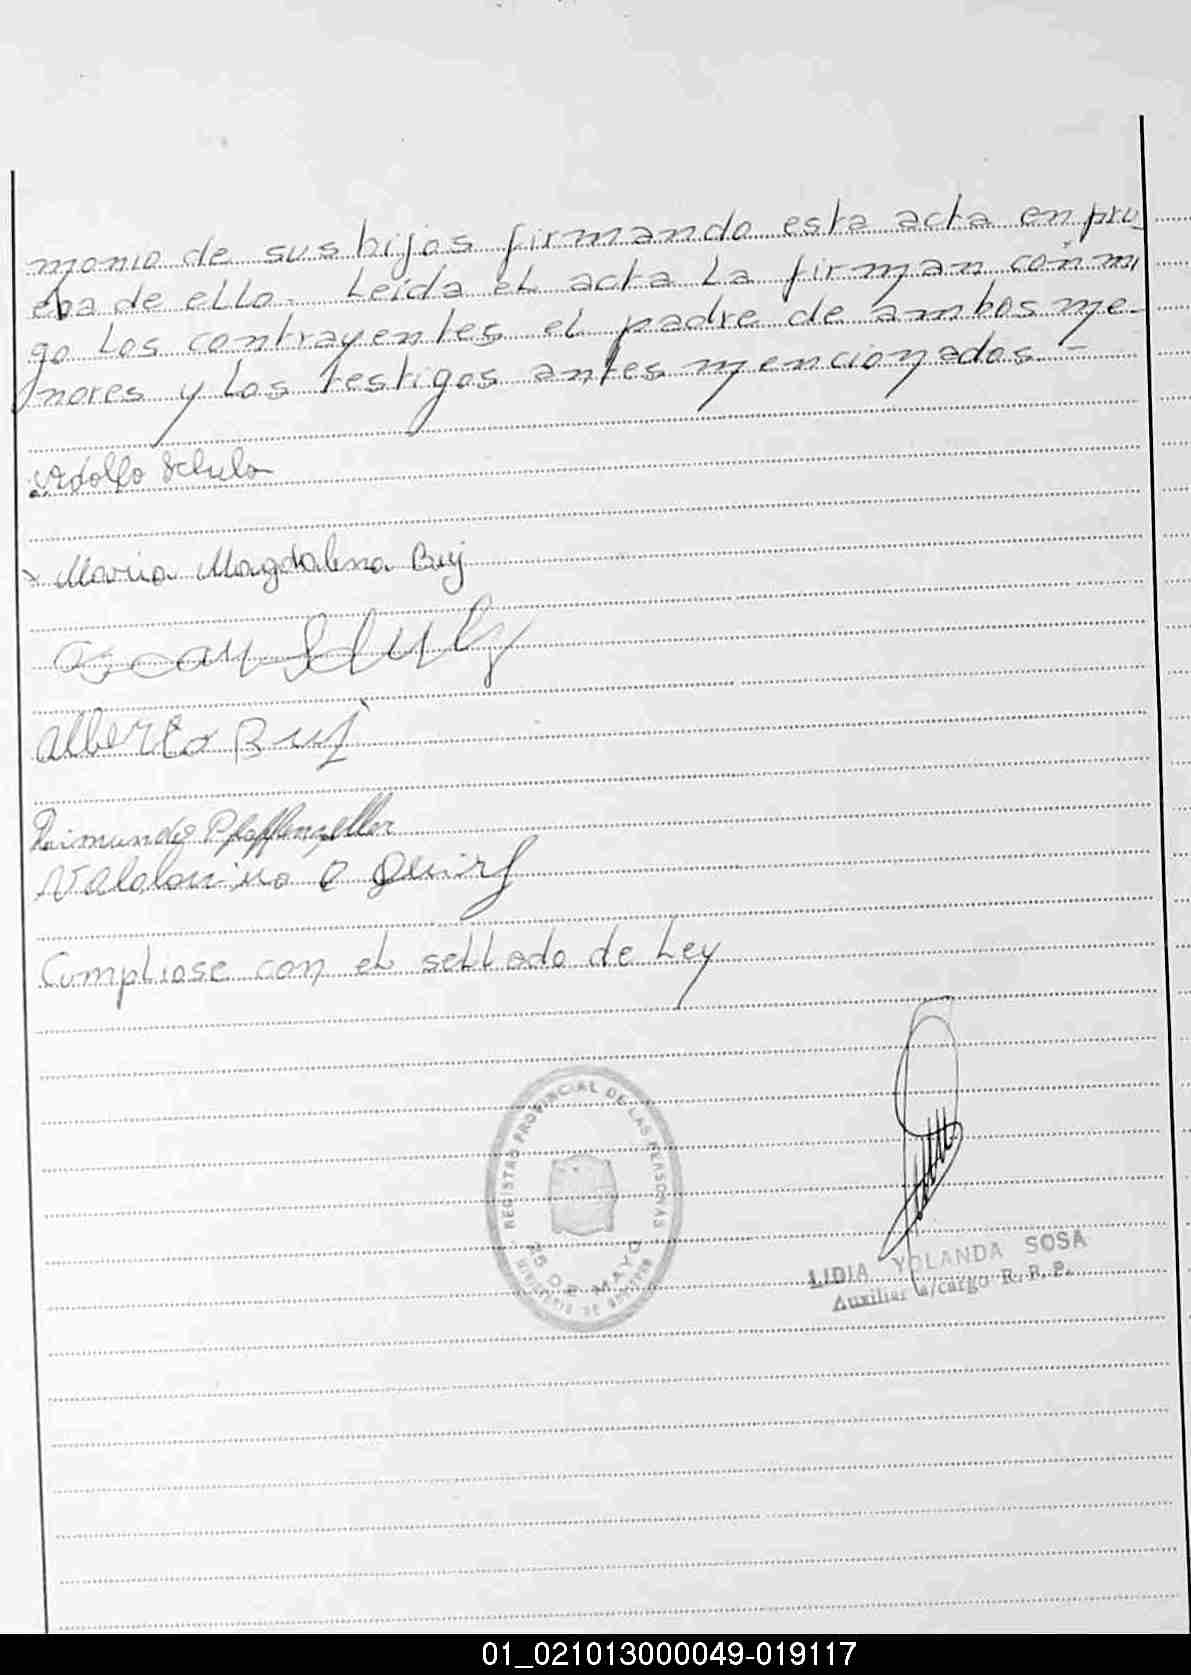 monio de sus hijos firmando esta acta en pru_
eba de ello. Leida el acta La firman conmi
go Los contrayentes el padre de ambos me-
nores y Los testigos antes mencionados.-
Adolfo Schulz
Maria Magdalena Buj
Oscar Schulz
Alberto Buj
Raimundo Pfaffenzeller
Cumpliose con el sellado de Ley
REGISTRO PROVINCIAL DE LAS PERSONAS
25 DE MAYO
MINISTERIO DE GOBIERNO
LIDIA YOLANDA SOSA
Auxiliar a/cargo R. R. P.
01_021013000049-019117